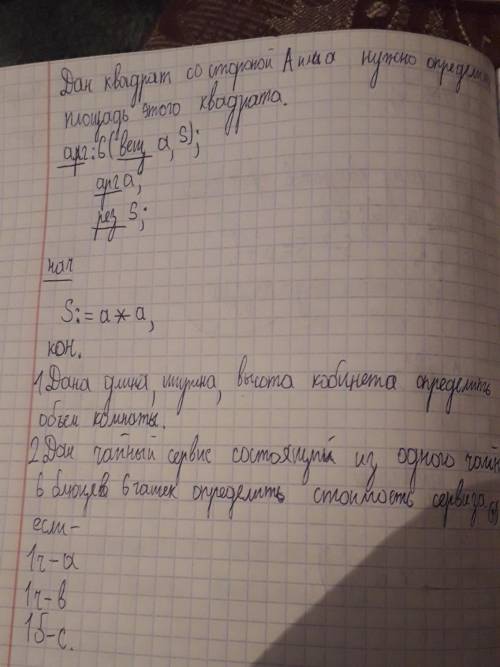 Дан квадрат со стороной А нужно определи
площадь этого квадрата.
арг: б (вещ а, S);
арг а,
рез S;
нач
S:= a * a,
кон.
1 Дана длина, ширина, высота кабинета определить
объем комнаты.
2. Дан чайный сервис состоящий из одного чайн
6 блюцев 6 чашек определить стоимость сервиза
если-
1ч-а
1ч-в
1б-с.